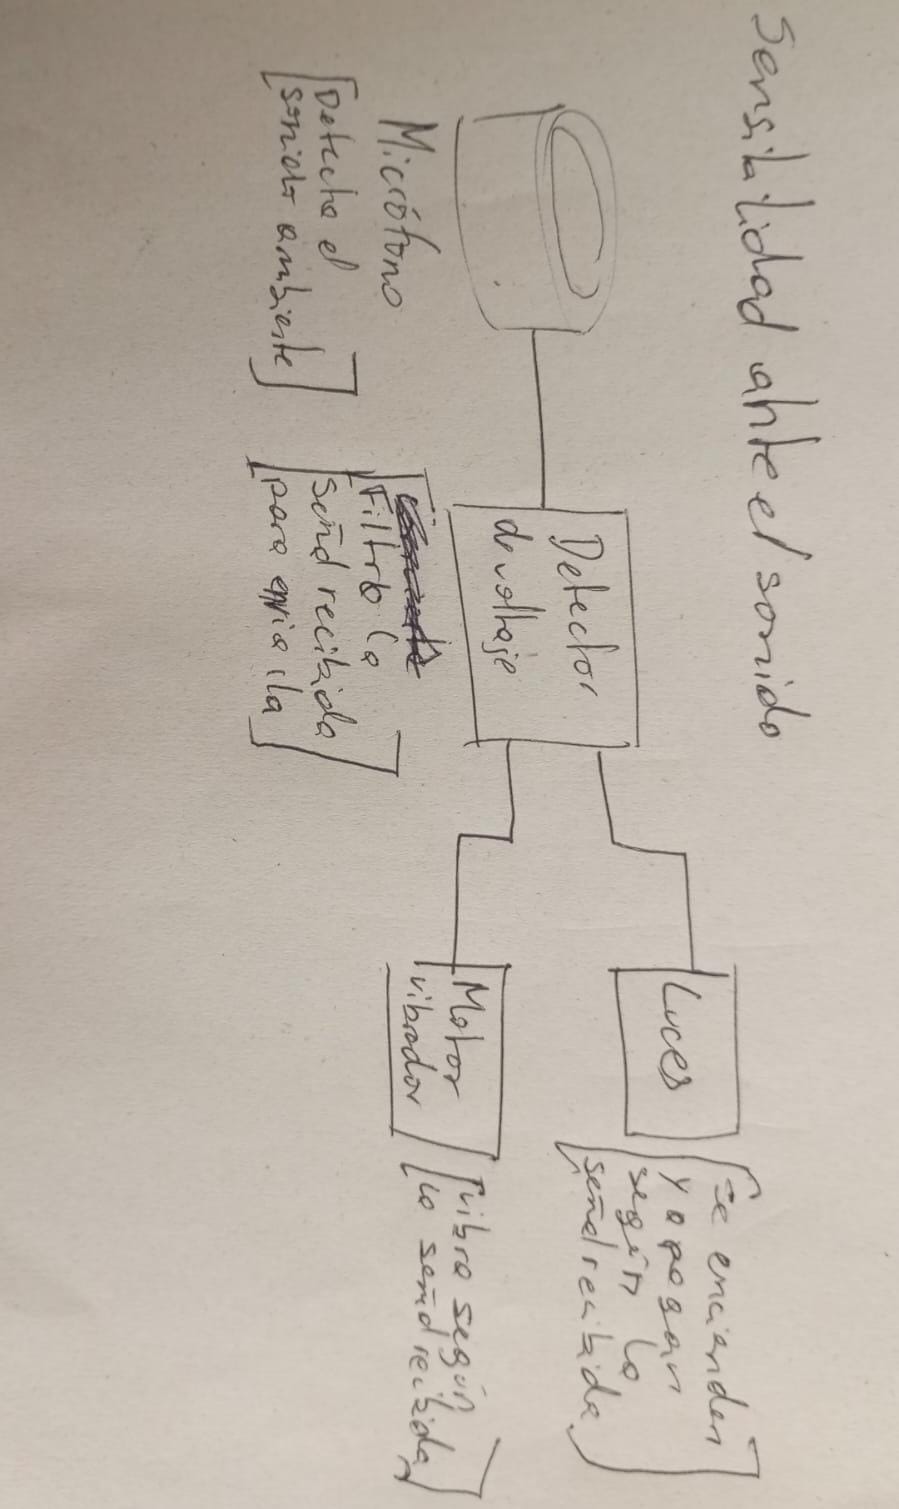 Sensibilidad ante el sonido
Micrófono
[Detecta el
sonido ambiente]
Detector
de voltaje
[Filtra la
señal recibida
para enviarla]
Luces
[Se encienden
y apagan
según la
señal recibida]
Motor
vibrador
[vibra según
la señal recibida]